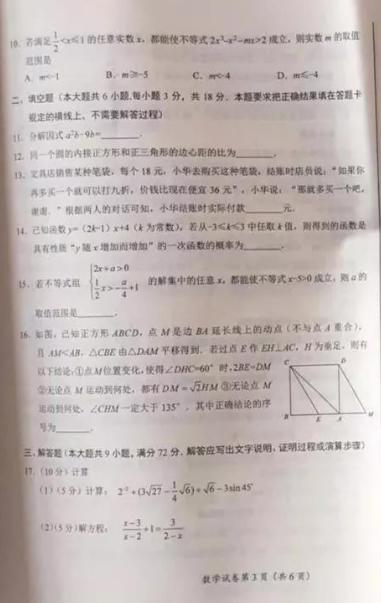 10. 若满足 1/2<x≤1 的任意实数 x，都能使不等式 2x³-x²-mx>2 成立，则实数 m 的取值
范围是
A. m<-1 B. m≥-5 C. m<-4 D. m≤-4
二、填空题（本大题共 6 小题,每小题 3 分，共 18 分．本题要求把正确结果填在答题卡
规定的横线上，不需要解答过程）
11. 分解因式 a²b-9b=______.
12. 同一个圆的内接正方形和正三角形的边心距的比为______.
13. 定具店销售某种笔袋，每个 18 元，小华去购买这种笔袋，结账时店员说：“如果你
再多买一个就可以打九折，价钱比现在便宜 36 元”，小华说：“那就多买一个吧，
谢谢．”根据两人的对话可知，小华结账时实际付款______元.
14. 已知函数 y=（2k-1）x+4（k 为常数），若从-3≤k≤3 中任取 k 值，则得到的函数是
具有性质“y 随 x 增加而增加”的一次函数的概率为______.
15. 若不等式组 { 2x+a>0
1/2 x>-a/4+1 的解集中的任意 x，都能使不等式 x-5>0 成立，则 a 的
取值范围是______.
16. 如图，已知正方形 ABCD，点 M 是边 BA 延长线上的动点（不与点 A 重合），
且 AM<AB，△CBE 由△DAM 平移得到．若过点 E 作 EH⊥AC，H 为垂足，则有
以下结论：①点 M 位置变化，使得∠DHC=60°时，2BE=DM
②无论点 M 运动到何处，都有 DM=√2HM ③无论点 M
运动到何处，∠CHM 一定大于 135°．其中正确结论的序
号为______.
C D
H
B E A M
三、解答题（本大题共 9 小题，满分 72 分．解答应写出文字说明，证明过程或演算步骤）
17.（10 分）计算
（1）（5 分）计算：2⁻²+(3√27-1/4√6)÷√6-3sin45°
（2）（5 分）解方程：(x-3)/(x-2)+1=3/(2-x)
数学试卷第 3 页（共 6 页）